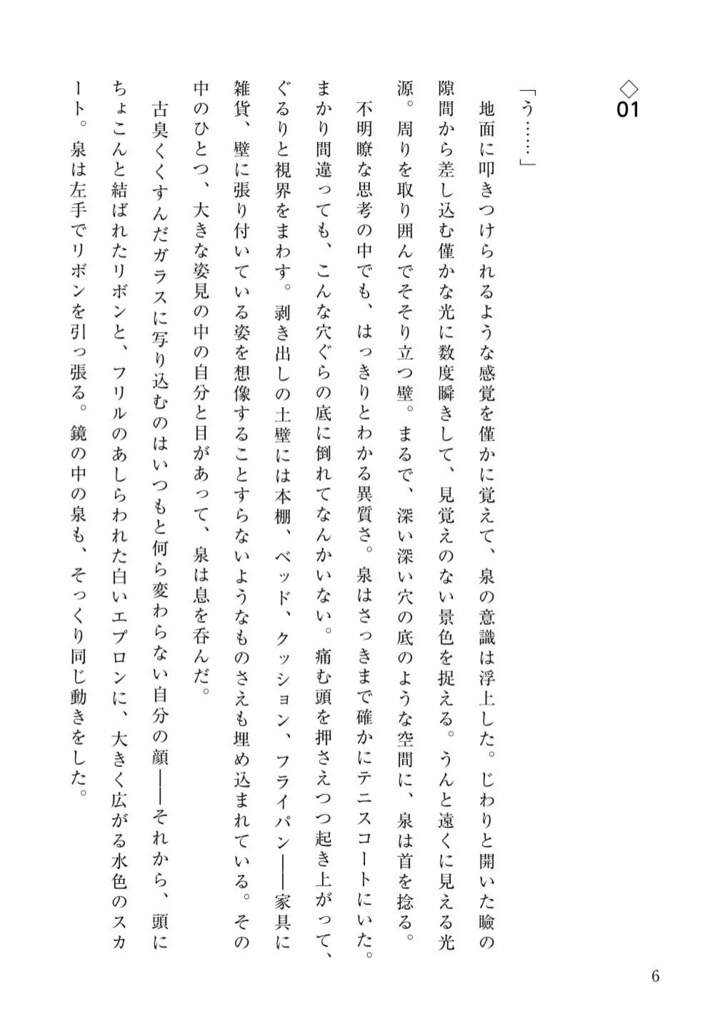 ◇
01
「う……」
　地面に叩きつけられるような感覚を僅かに覚えて、泉の意識は浮上した。じわりと開いた瞼の
隙間から差し込む僅かな光に数度瞬きして、見覚えのない景色を捉える。うんと遠くに見える光
源。周りを取り囲んでそそり立つ壁。まるで、深い深い穴の底のような空間に、泉は首を捻る。
　不明瞭な思考の中でも、はっきりとわかる異質さ。泉はさっきまで確かにテニスコートにいた。
まかり間違っても、こんな穴ぐらの底に倒れてなんかいない。痛む頭を押さえつつ起き上がって、
ぐるりと視界をまわす。剥き出しの土壁には本棚、ベッド、クッション、フライパン――家具に
雑貨、壁に張り付いている姿を想像することすらないようなものさえも埋め込まれている。その
中のひとつ、大きな姿見の中の自分と目があって、泉は息を呑んだ。
　古臭くくすんだガラスに写り込むのはいつもと何ら変わらない自分の顔――それから、頭に
ちょこんと結ばれたリボンと、フリルのあしらわれた白いエプロンに、大きく広がる水色のスカ
ート。泉は左手でリボンを引っ張る。鏡の中の泉も、そっくり同じ動きをした。
6